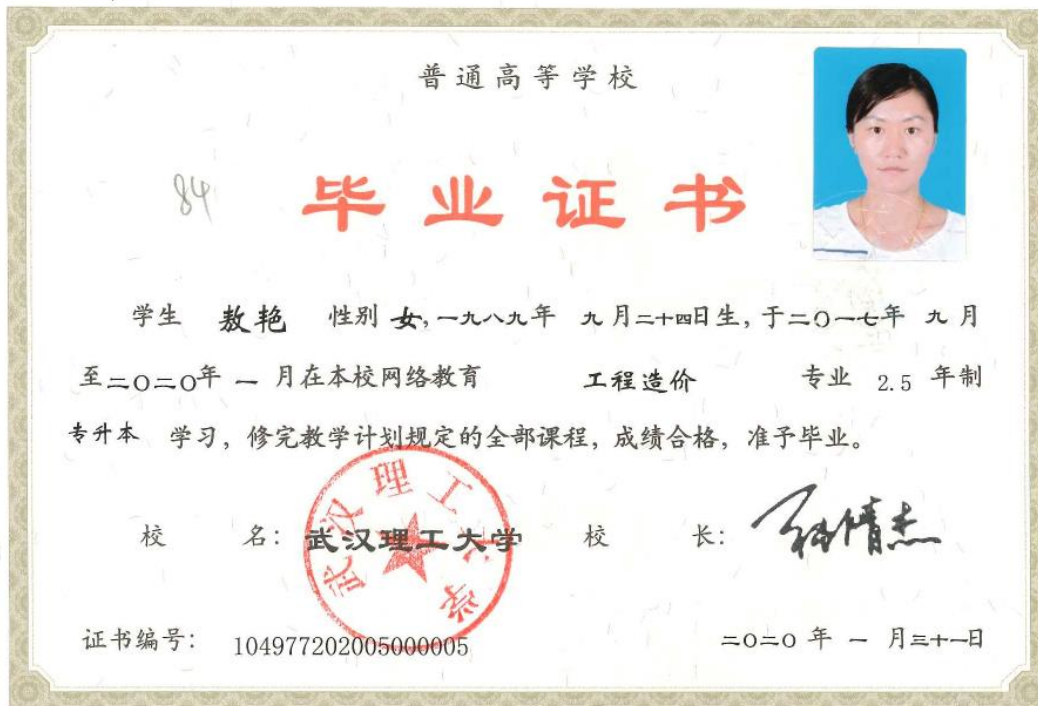 普通高等学校
84
毕业证书
学生 敖艳 性别 女,一九八九年 九月二十四日生,于二〇一七年 九月
至二〇二〇年 一 月在本校网络教育 工程造价 专业 2.5 年制
专升本 学习,修完教学计划规定的全部课程,成绩合格,准予毕业。
校 名:武汉理工大学 校 长:
武汉理工大学
证书编号: 104977202005000005 二〇二〇 年 一 月三十一日